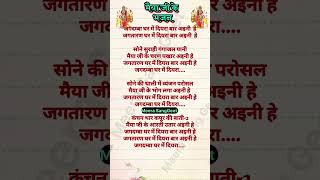 मैया जी के
भजन
जगदम्बा घर में दियरा बार अइनी हे
जगतारण घर में दियरा बार अइनी हे
सोने सुराही गंगाजल पानी
मैया जी के चरण पखार अइनी हे
जगतारण घर में दियरा बार अइनी हे
जगदम्बा घर में दियरा....
सोने की थाली में व्यंजन परोसल
मैया जी के भोग लगा अइनी हे
जगतारण घर में दियरा बार अइनी हे
जगदम्बा घर में दियरा....
Meera SangGeet
कंचन थार कपूर की बाती-2
मैया जी के आरती उतार अइनी हे
जगदम्बा घर में दियरा बार अइनी हे
जगतारण घर में दियरा बार अइनी हे
जगदम्बा घर में दियरा....